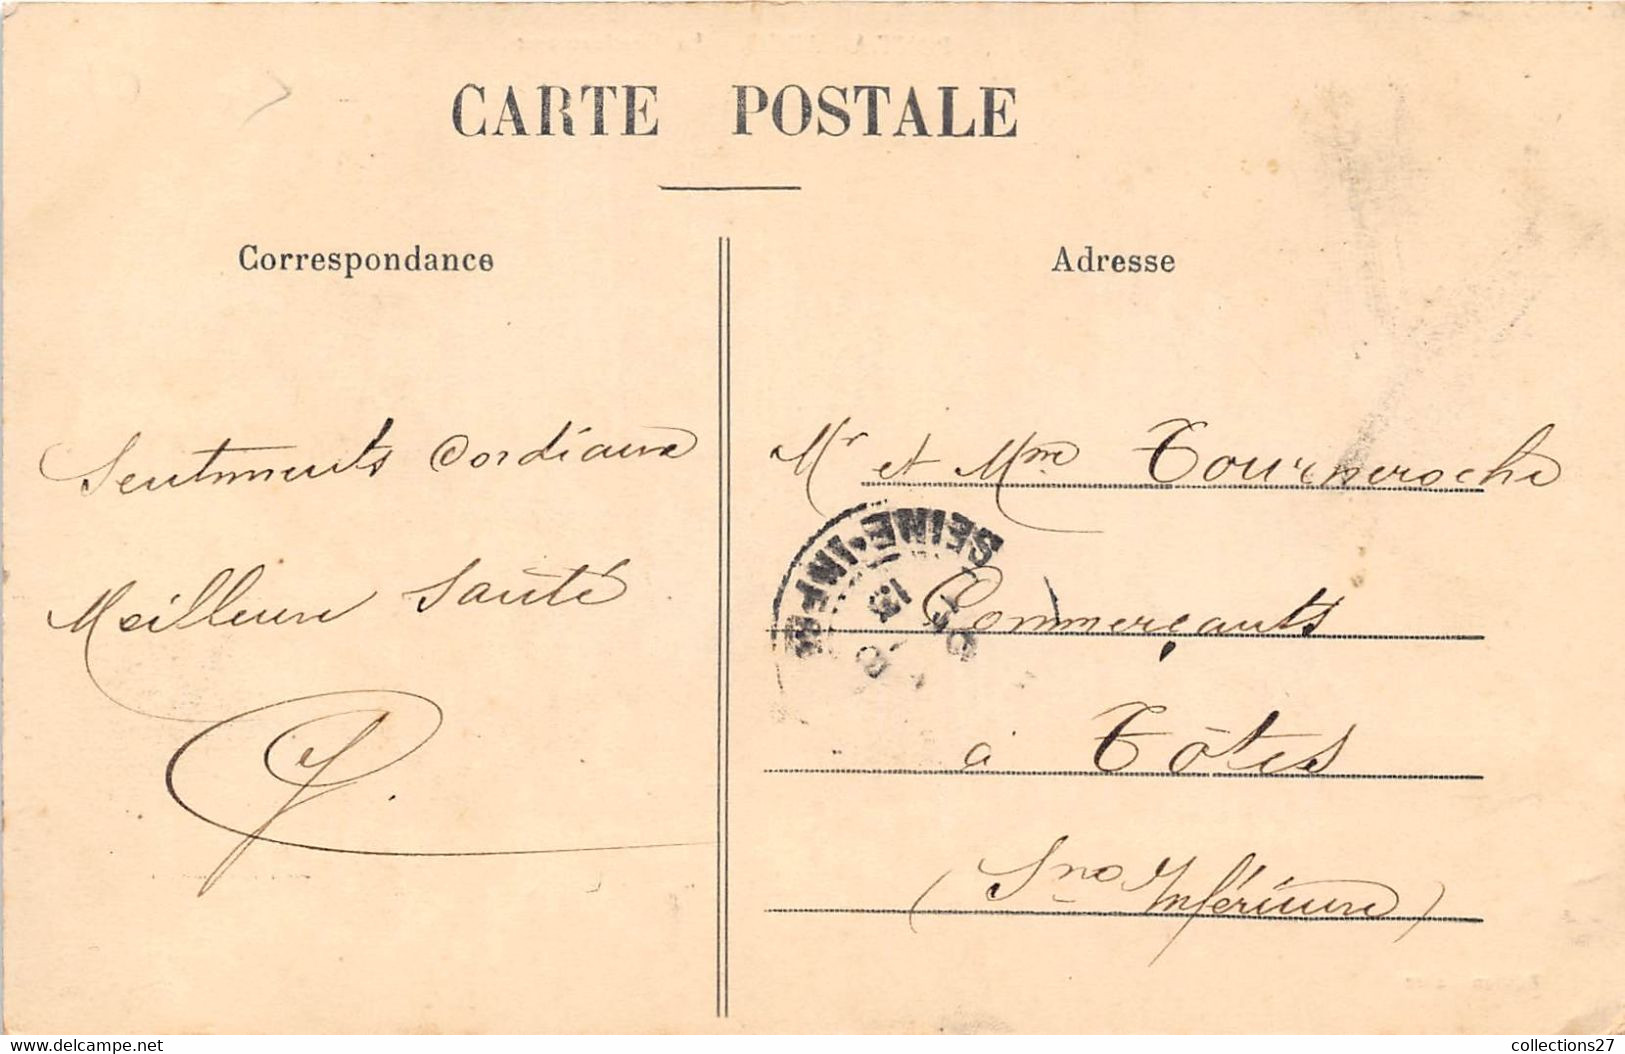 CARTE POSTALE
Correspondance
Adresse
Sentiments Cordiaux
Meilleure Santé
Mr et Mme Tourneroche
Commerçants
à Tôtes
(Sne Inférieure)
SEINE-INFRE
www.delcampe.net
collections27